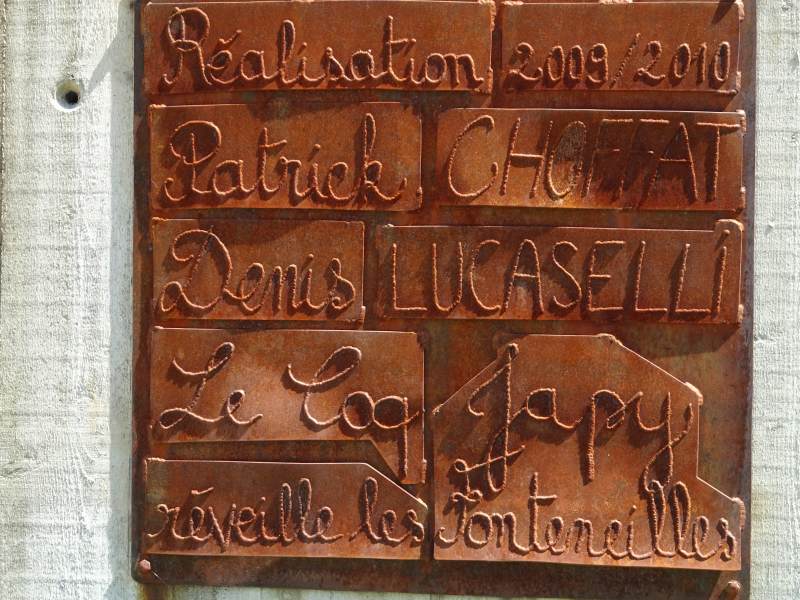 Réalisation 2009/2010
Patrick CHOFFAT
Denis LUCASELLI
Le Coq Japy
réveille les Fonteneilles